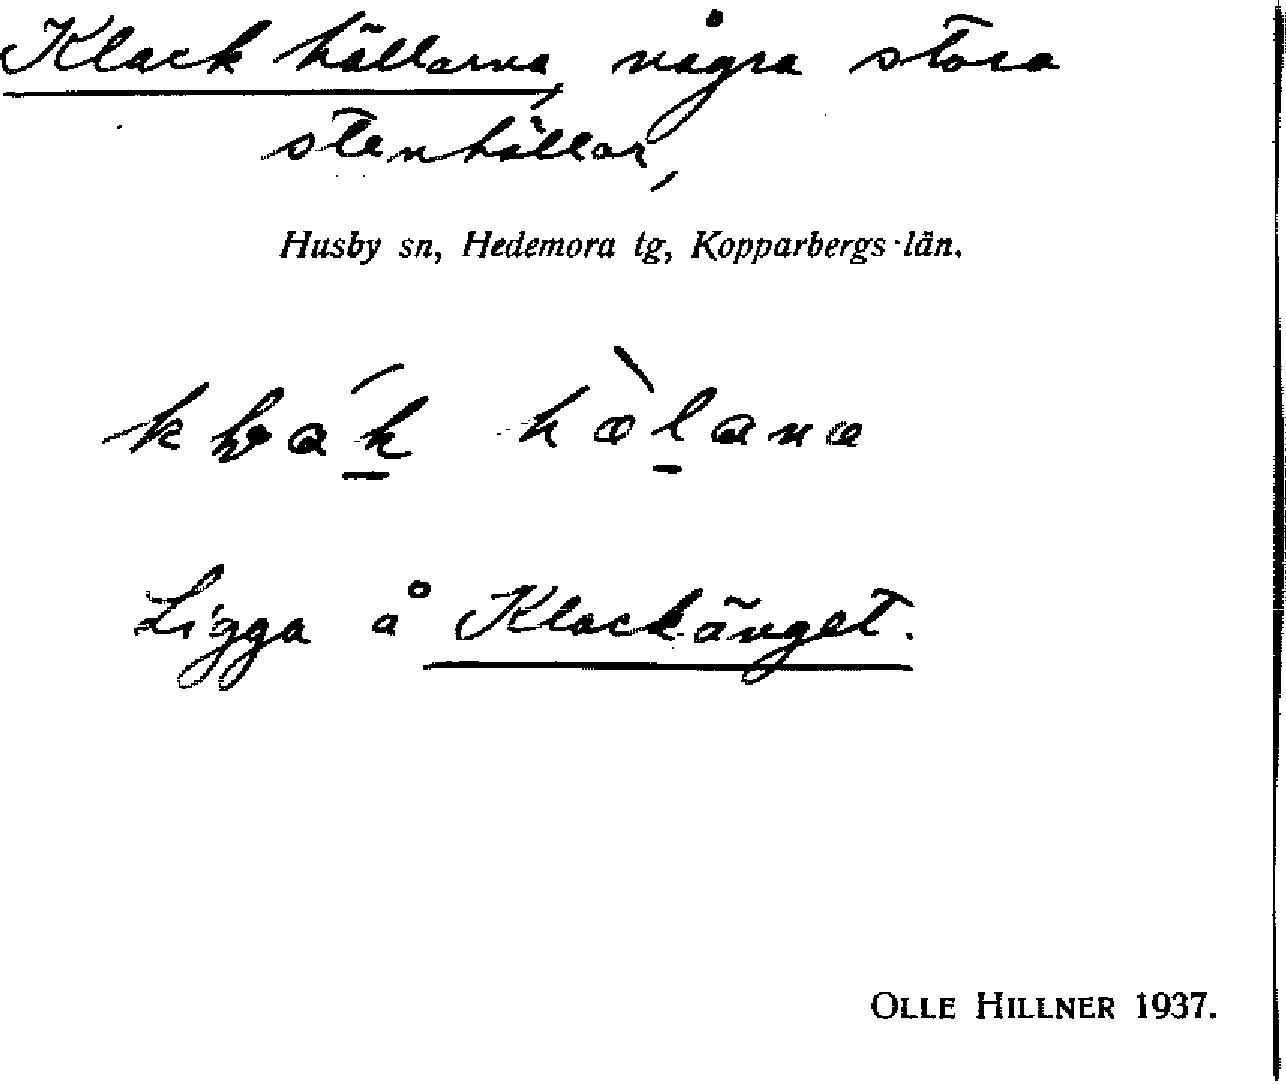 Klackhällarna, några stora
stenhällar,
Husby sn, Hedemora tg, Kopparbergs län.
hælana
Ligga å Klackänget.
OLLE HILLNER 1937.